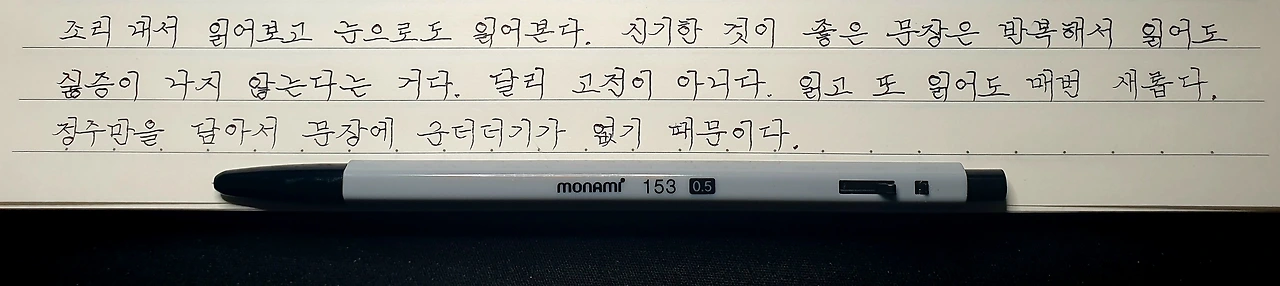 조리 내서 읽어보고 눈으로도 읽어본다. 신기한 것이 좋은 문장은 반복해서 읽어도
싫증이 나지 않는다는 거다. 달리 고전이 아니다. 읽고 또 읽어도 매번 새롭다.
정수만을 담아서 문장에 군더더기가 없기 때문이다.
monami 153 0.5